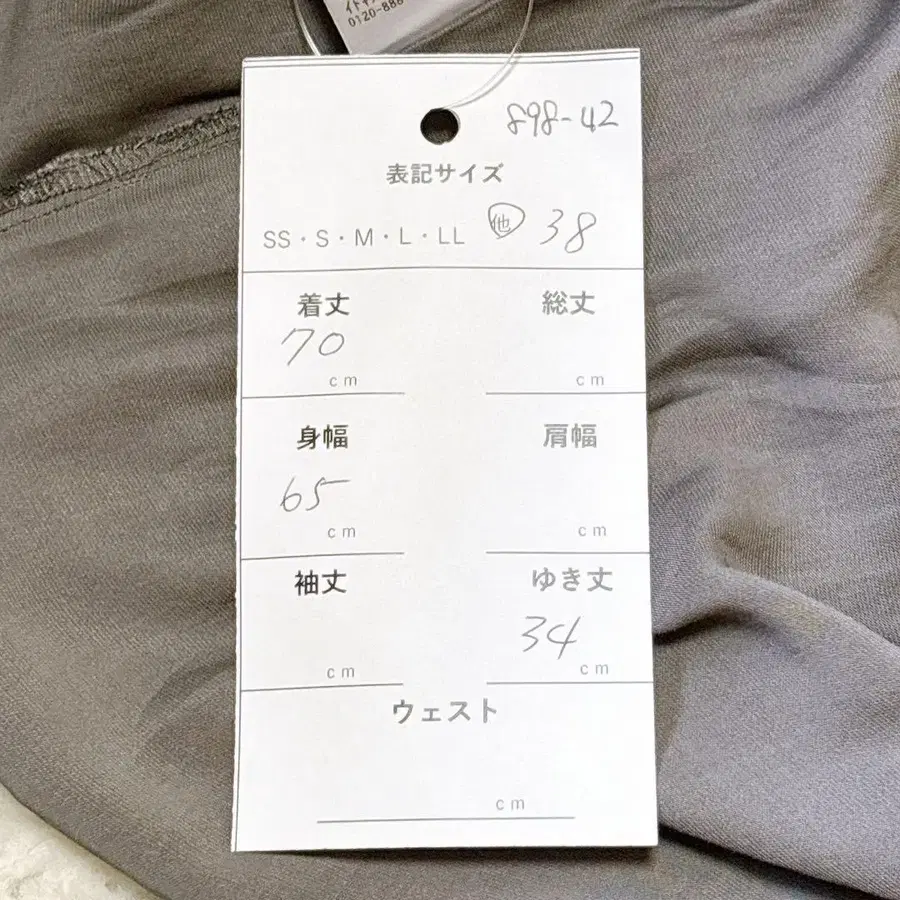 0120-888
898-42
表記サイズ
SS・S・M・L・LL 他 38
着丈 総丈
70
cm cm
身幅 肩幅
65
cm cm
袖丈 ゆき丈
34
cm cm
ウェスト
cm